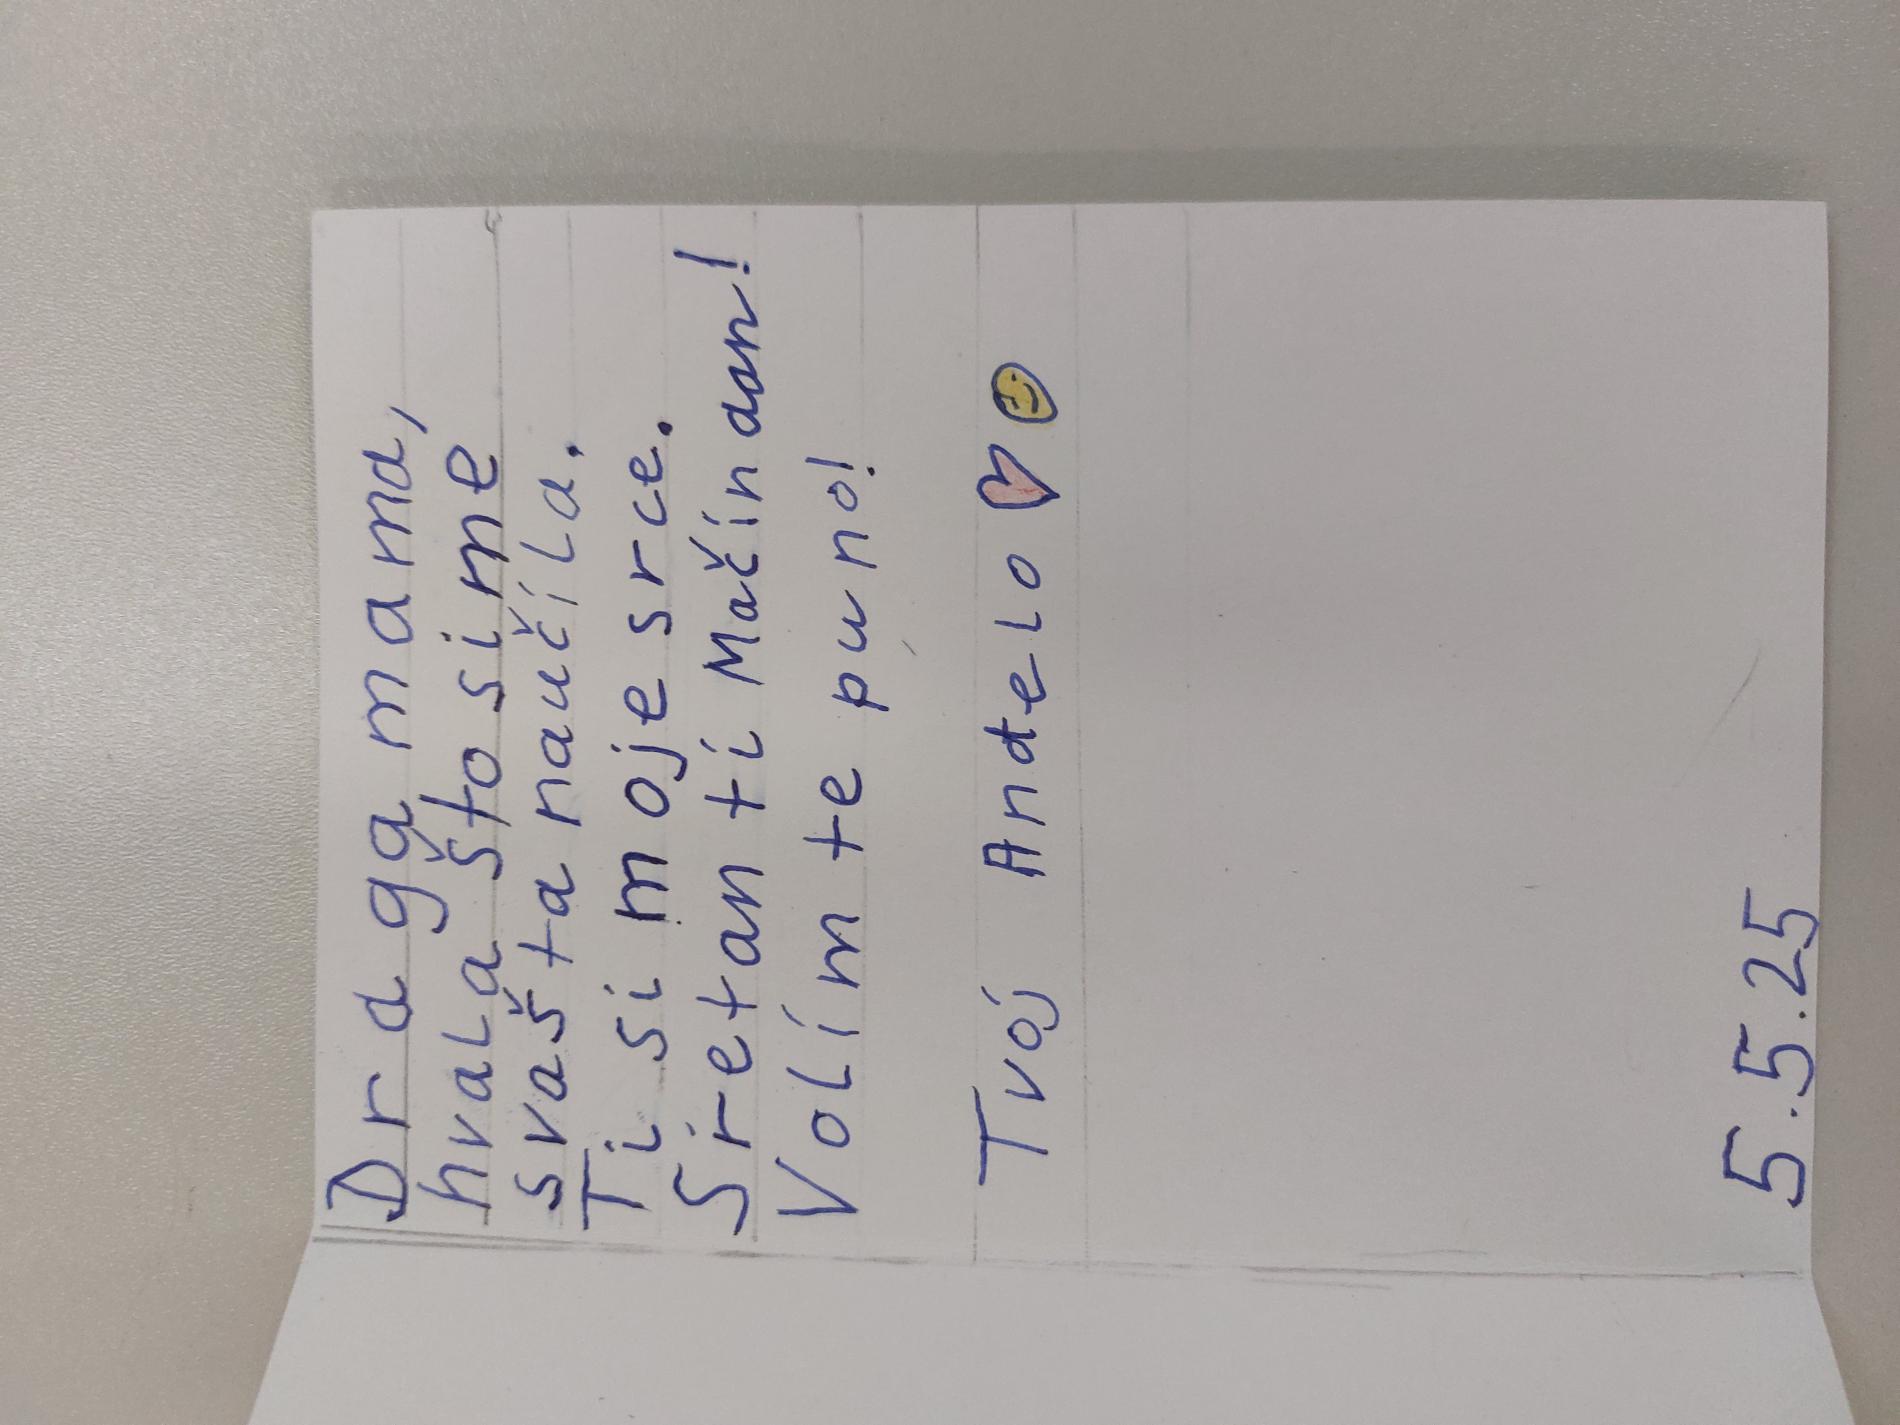 Draga mama,
hvala što si me
svašta naučila.
Ti si moje srce.
Sretan ti Mačin dan!
Volim te puno!
Tvoj Anđelo
5.5.25